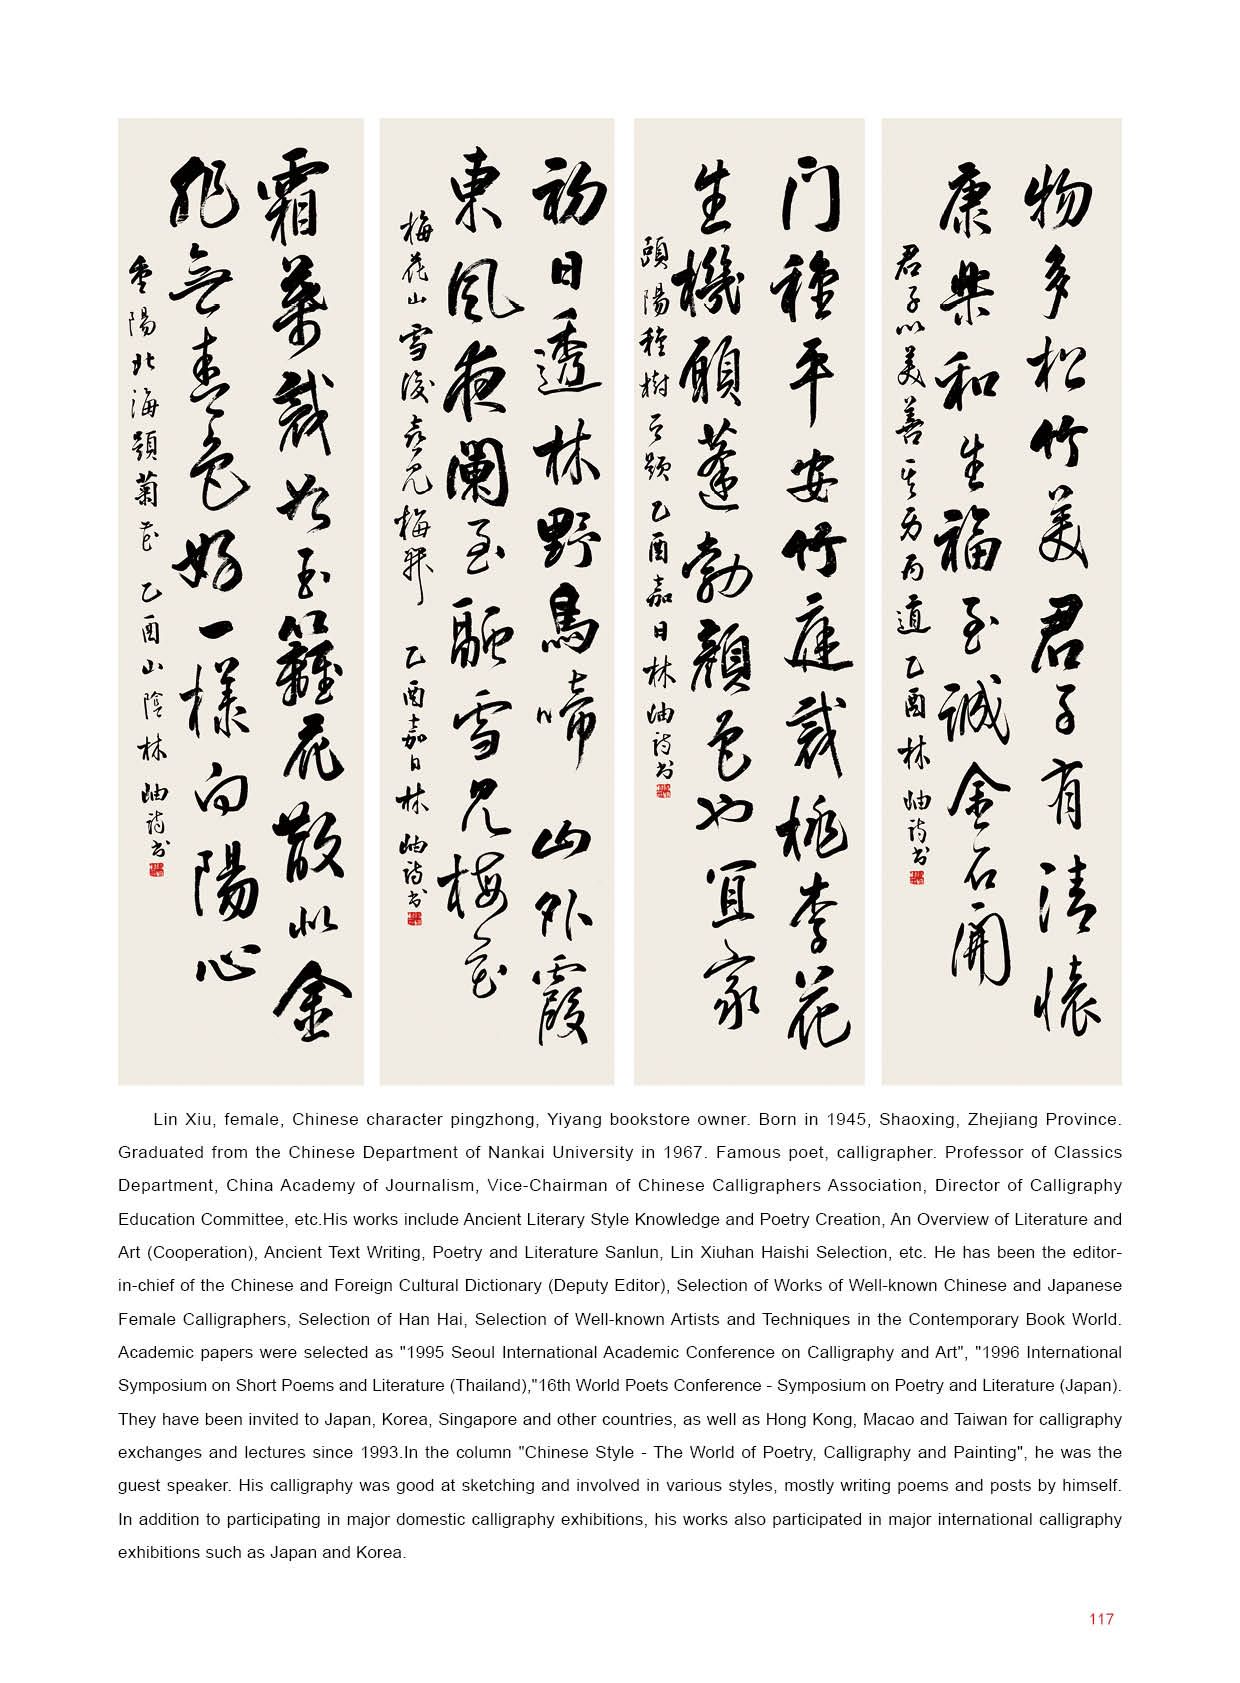 物多松竹美君子有清懷
康樂和生福至誠金石開
君子以美善其 道 乙酉林岫詩書
门種平安竹庭栽桃李花
生機願蓬勃顏色也宜家
頭陽種樹 題 乙酉嘉日林岫詩書
初日透林野鳥啼山外霞
東風夜闌至融雪見梅花
梅花山雪後喜見梅 乙酉嘉日林岫詩書
霜葉裁如玉籬花散似金
非無春色好一樣向陽心
重陽北海題菊花 乙酉山陰林岫詩書
Lin Xiu, female, Chinese character pingzhong, Yiyang bookstore owner. Born in 1945, Shaoxing, Zhejiang Province.
Graduated from the Chinese Department of Nankai University in 1967. Famous poet, calligrapher. Professor of Classics
Department, China Academy of Journalism, Vice-Chairman of Chinese Calligraphers Association, Director of Calligraphy
Education Committee, etc.His works include Ancient Literary Style Knowledge and Poetry Creation, An Overview of Literature and
Art (Cooperation), Ancient Text Writing, Poetry and Literature Sanlun, Lin Xiuhan Haishi Selection, etc. He has been the editor-
in-chief of the Chinese and Foreign Cultural Dictionary (Deputy Editor), Selection of Works of Well-known Chinese and Japanese
Female Calligraphers, Selection of Han Hai, Selection of Well-known Artists and Techniques in the Contemporary Book World.
Academic papers were selected as "1995 Seoul International Academic Conference on Calligraphy and Art", "1996 International
Symposium on Short Poems and Literature (Thailand),"16th World Poets Conference - Symposium on Poetry and Literature (Japan).
They have been invited to Japan, Korea, Singapore and other countries, as well as Hong Kong, Macao and Taiwan for calligraphy
exchanges and lectures since 1993.In the column "Chinese Style - The World of Poetry, Calligraphy and Painting", he was the
guest speaker. His calligraphy was good at sketching and involved in various styles, mostly writing poems and posts by himself.
In addition to participating in major domestic calligraphy exhibitions, his works also participated in major international calligraphy
exhibitions such as Japan and Korea.
117